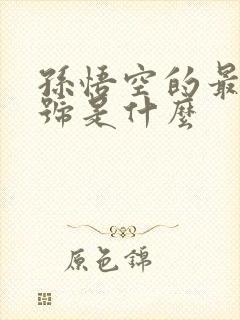 孫悟空的最
號是什麼
原色錦